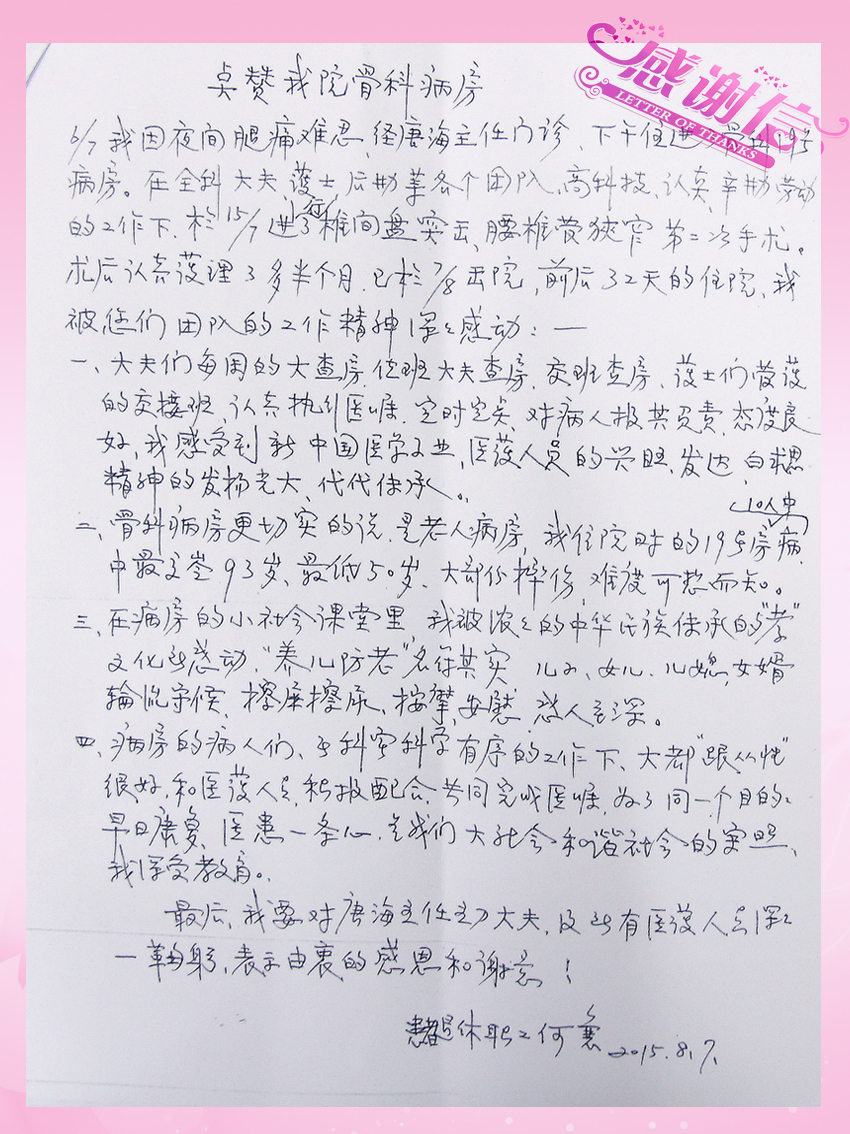 感谢信
LETTER OF THANKS
点赞我院骨科病房
6/7我因夜间腿痛难忍、经唐海主任门诊、下午住进骨科195
病房。在全科大夫、护士、后勤等各个团队、高科技、认真、辛勤劳动
的工作下、于15/7进行了椎间盘突出、腰椎管狭窄第二次手术。
术后认真护理了多半个月、已于7/8出院，前后32天的住院、我
被您们团队的工作精神深深感动：—
一、大夫们每周的大查房、值班大夫查房、交班查房、护士们
的交接班、认真执行医嘱、定时定点、对病人极其负责、态度良
好，我感受到新中国医学事业、医护人员的兴旺、发达、白求恩
精神的发扬光大、代代传承。
10人中
二、骨科病房更切实的说、是老人病房，我住院时的195房病
中最高岁93岁、最低50岁、大部份摔伤，难度可想而知。
三、在病房的小社会课堂里、我被浓浓的中华民族传承的"孝"
文化所感动、"养儿防老"名符其实 儿子、女儿、儿媳，女婿
轮流守候、擦屎擦尿、按摩、安慰 感人至深。
四、病房的病人们、在科室科学有序的工作下、大都"跟从性"
很好，和医护人员积极配合，共同完成医嘱，为了同一个目的：
早日康复、医患一条心、是我们大社会和谐社会的实照、
我深受教育。
最后，我要对唐海主任主刀大夫，及所有医护人员深深
一鞠躬、表示由衷的感恩和谢意！
患者退休职工何 2015.8.7.